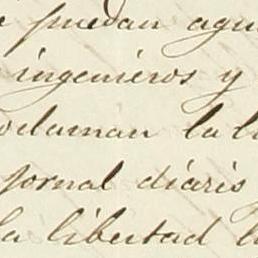 puedan
ingenieros y
la
jornal diario
la libertad